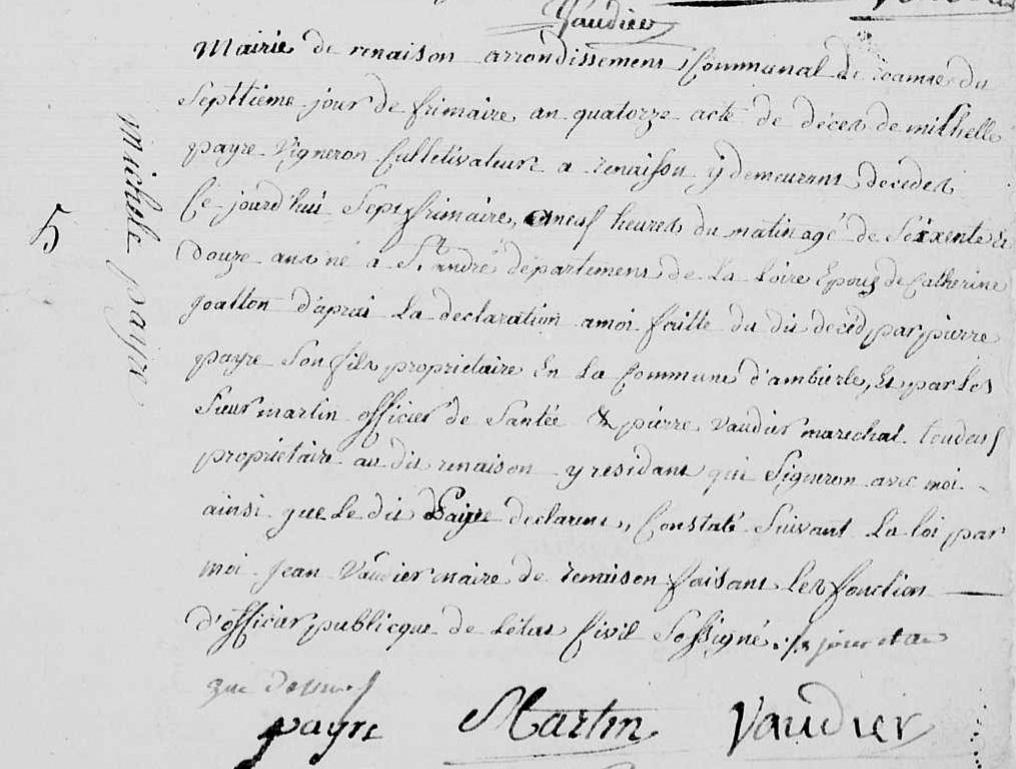 Vaudier
Mairie de renaison arrondissement Communal de roanne du
Septtieme jour de frimaire an quatorze acte de déces de mithelle
payre Vigneron Culletivateure a renaison ÿ demeurant decedet
Ce jourd'hui Sept frimaire, a neuf heures du matin agé de Seixente et
Douze ans né a St andré département de La Loire Epoux de Catherine
joatton d'aprai La declaration a moi faitte du dit déced par pierre
payre Son fils proprietaire En La Commune d'ambierle, Et par Les
Sieur martin officier de Santée & pierre Vaudier marechal tou deus
proprietaire au dit renaison y residant qui Signeron avec moi
ainsi que Le dit Paÿre declarant, Constaté Suivant La loi par
moi Jean Vaudier maire de renaison faisant Les fonction
d'officier publicque de L'etat Civil Sossigné. Les jour et an
que dessus
payre Martin Vaudier
Michele payre
5